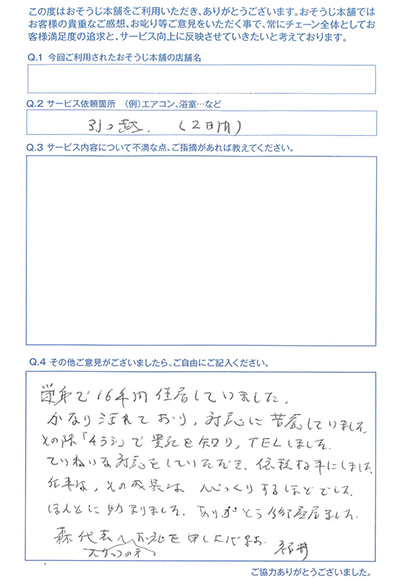 この度はおそうじ本舗をご利用いただき、ありがとうございます。おそうじ本舗では
お客様の貴重なご感想、お叱り等ご意見をいただく事で、常にチェーン全体としてお
客様満足度の追求と、サービス向上に反映させていきたいと考えております。
Q.1 今回ご利用されたおそうじ本舗の店舗名
Q.2 サービス依頼箇所 （例）エアコン、浴室…など
引っ越. (2日間)
Q.3 サービス内容について不満な点、ご指摘があれば教えてください。
Q.4 その他ご意見がございましたら、ご自由にご記入ください。
単身で16年間住居していました。
かなり汚れており、対応に苦慮していました
その際「チラシ」で貴社を知り、TELしました
ていねいな対応をしていただき、依頼する事にしました
仕事は、その成果は びっくりするほどでした。
ほんとに助かりました。ありがとう御座居ました。
森代表へお礼を申し上げます
スタッフの方
ご協力ありがとうございました。